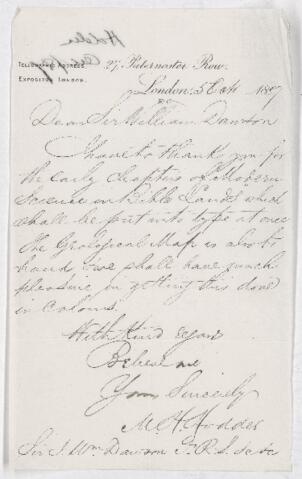 Hodder
Oct 5/87
TELEGRAPHIC ADDRESS
EXPOSITOR LONDON.
27, Paternoster Row,
London: 5 Oct 1887
Dear Sir William Dawson
I have to thank you for
the early chapters of Modern
Science in Bible Lands which
shall be put into type at once
The Geological Map is also to
hand & we shall have much
pleasure in getting this done
in colours.
With kind regards
Believe me
Yours Sincerely
M. H. Hodder
Sir J. Wm Dawson F.R.S. &c &c